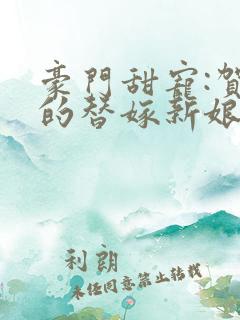 豪門甜寵:賀
的替嫁新娘
利朗
未经同意禁止转载